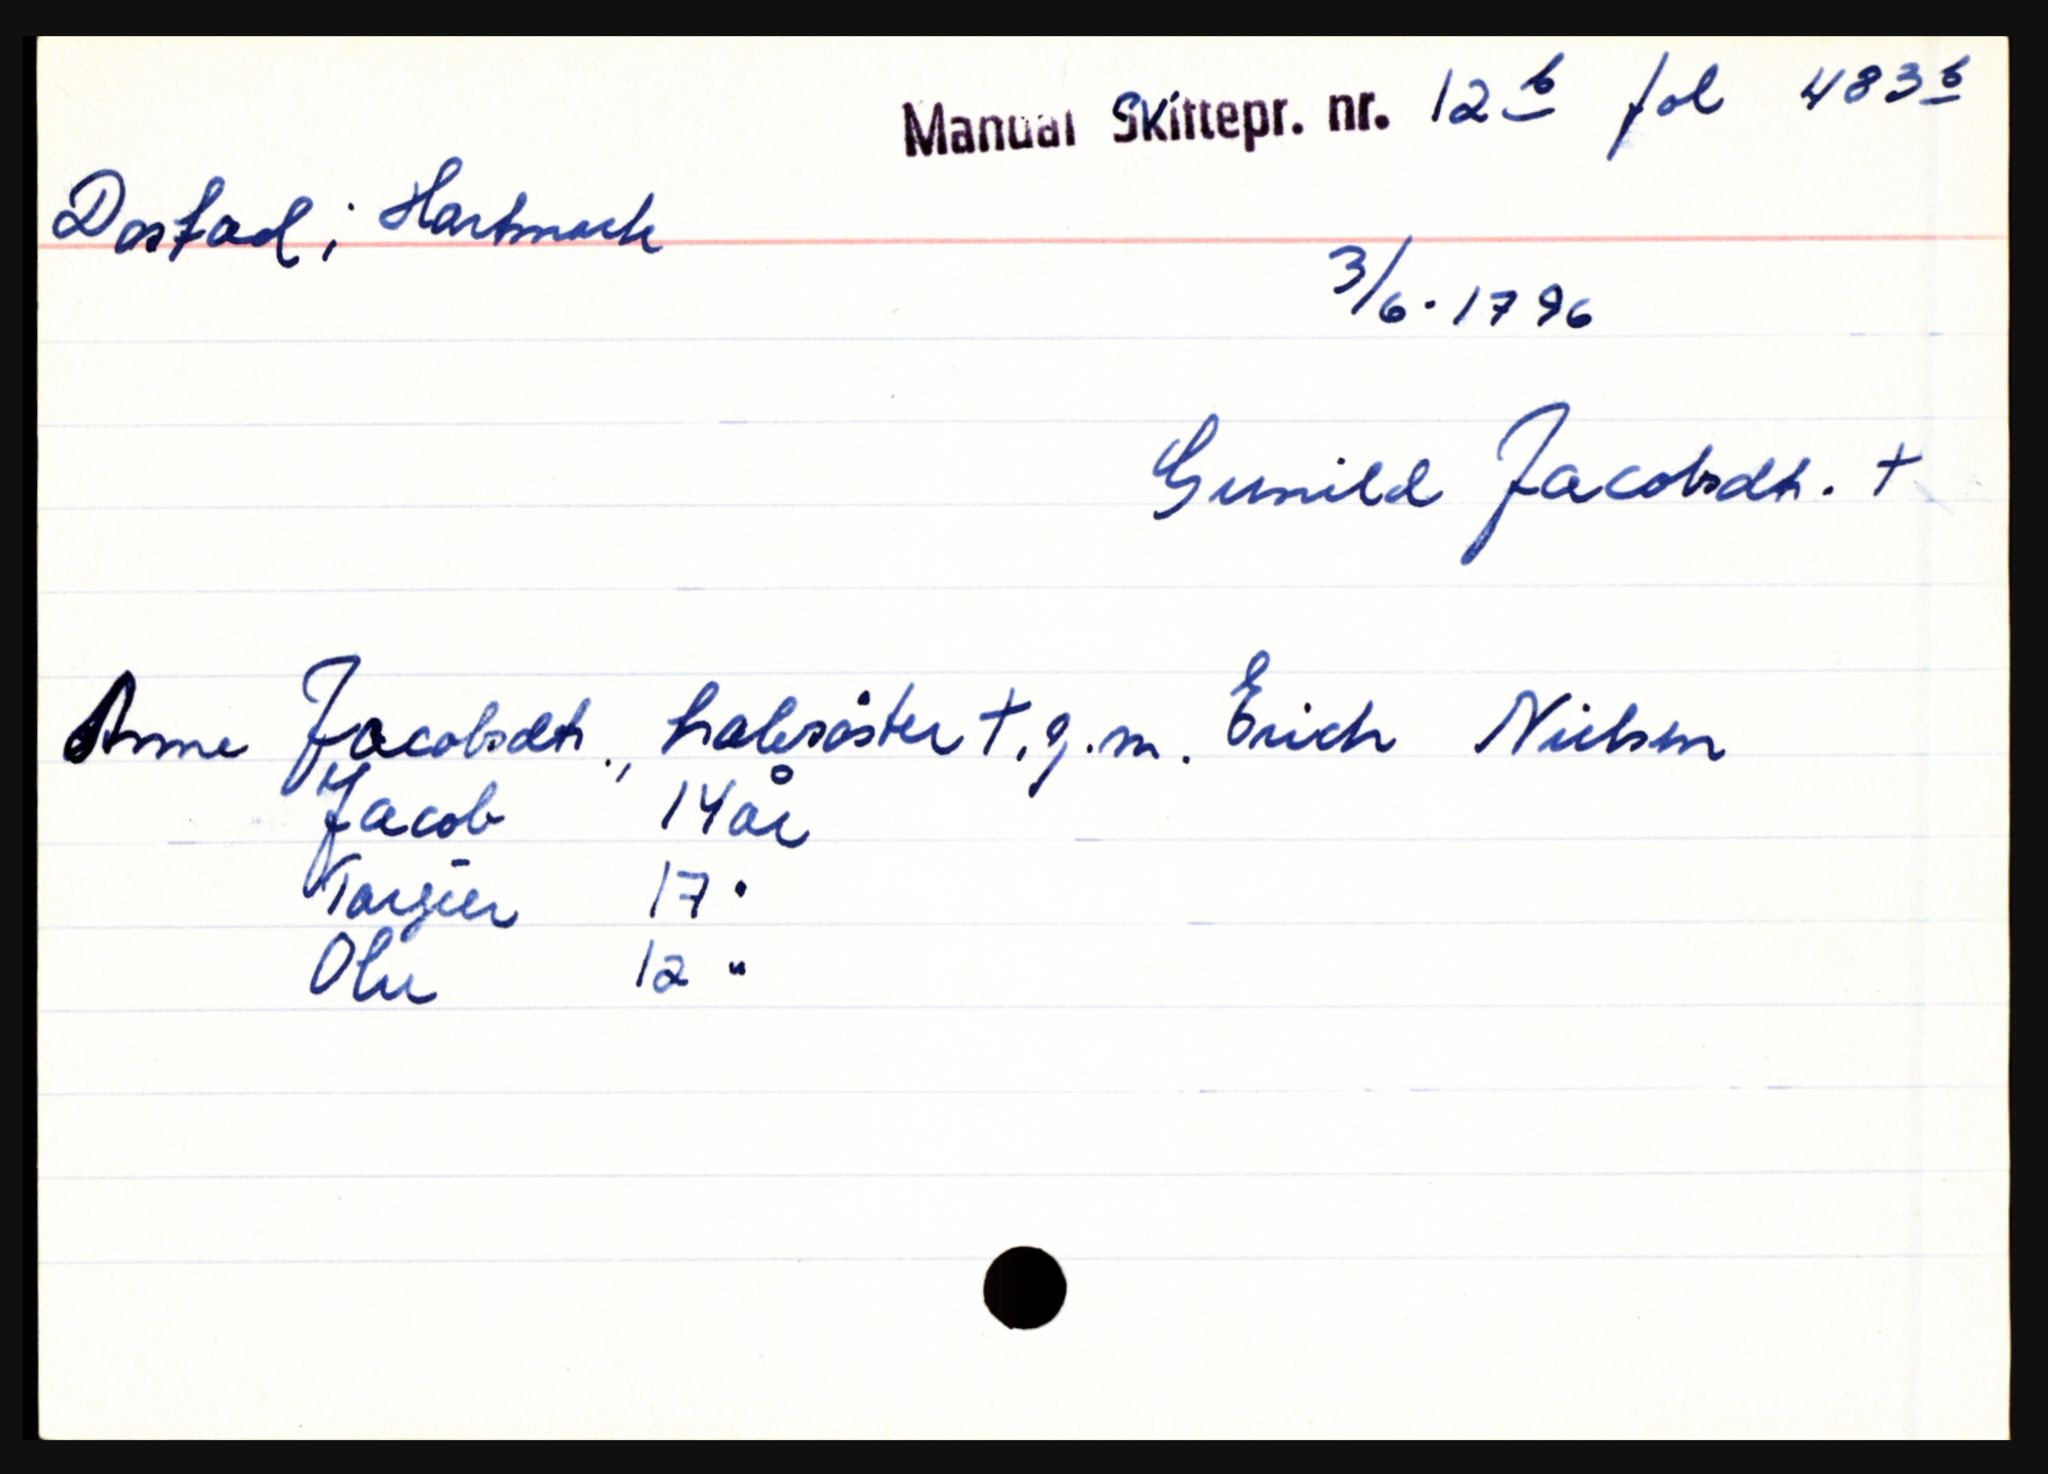 Manual Skiftepr. nr. 12 b fol 483 b
Dastad i Hartmark
3/6. 1796
Gunild Jacobsdt. †
Anne Jacobsdt., halvsöster †, g.m. Erich Nielsen
Jacob 14 år
Targier 17 "
Olu 12 "